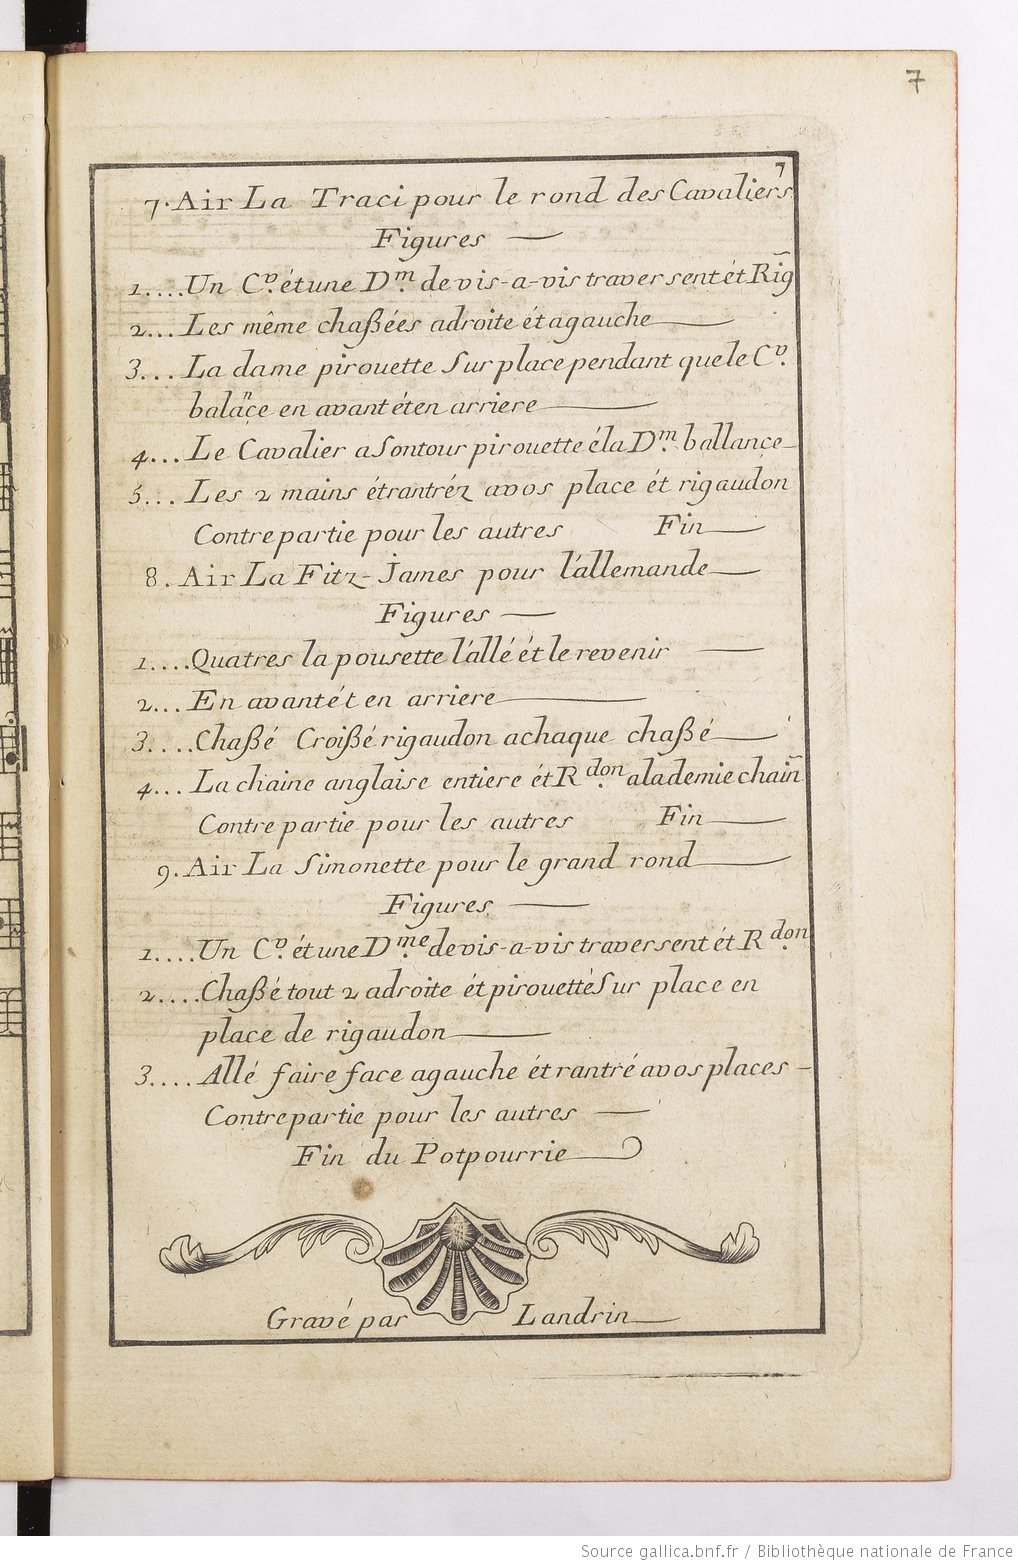 7
7
7. Air La Traci pour le rond des Cavaliers
Figures —
1.... Un C.v ét une D.m de vis-a-vis traversent ét Rig̃
2... Les même chaßées adroite ét agauche
3... La dame pirouette Sur place pendant que le C.v
balãce en avant ét en arriere
4... Le Cavalier a Son tour pirouette é la D.m ballance
5... Les 2 mains ét rantréz avos place ét rigaudon
Contre partie pour les autres Fin
8. Air La Fitz-James pour l'allemande
Figures —
1.... Quatres la pousette l'allé ét le revenir
2... En avant ét en arriere
3.... Chaßé Croißé rigaudon achaque chaßé
4... La chaine anglaise entiere ét R.don alademie chaiñ
Contre partie pour les autres Fin
9. Air La Simonette pour le grand rond
Figures —
1.... Un C.v ét une D.me de vis-a-vis traversent ét R.don
2.... Chaßé tout 2 adroite ét pirouetté Sur place en
place de rigaudon
3.... Allé faire face agauche ét rantré avos places -
Contre partie pour les autres —
Fin du Potpourrie
Gravé par Landrin
Source gallica.bnf.fr / Bibliothèque nationale de France